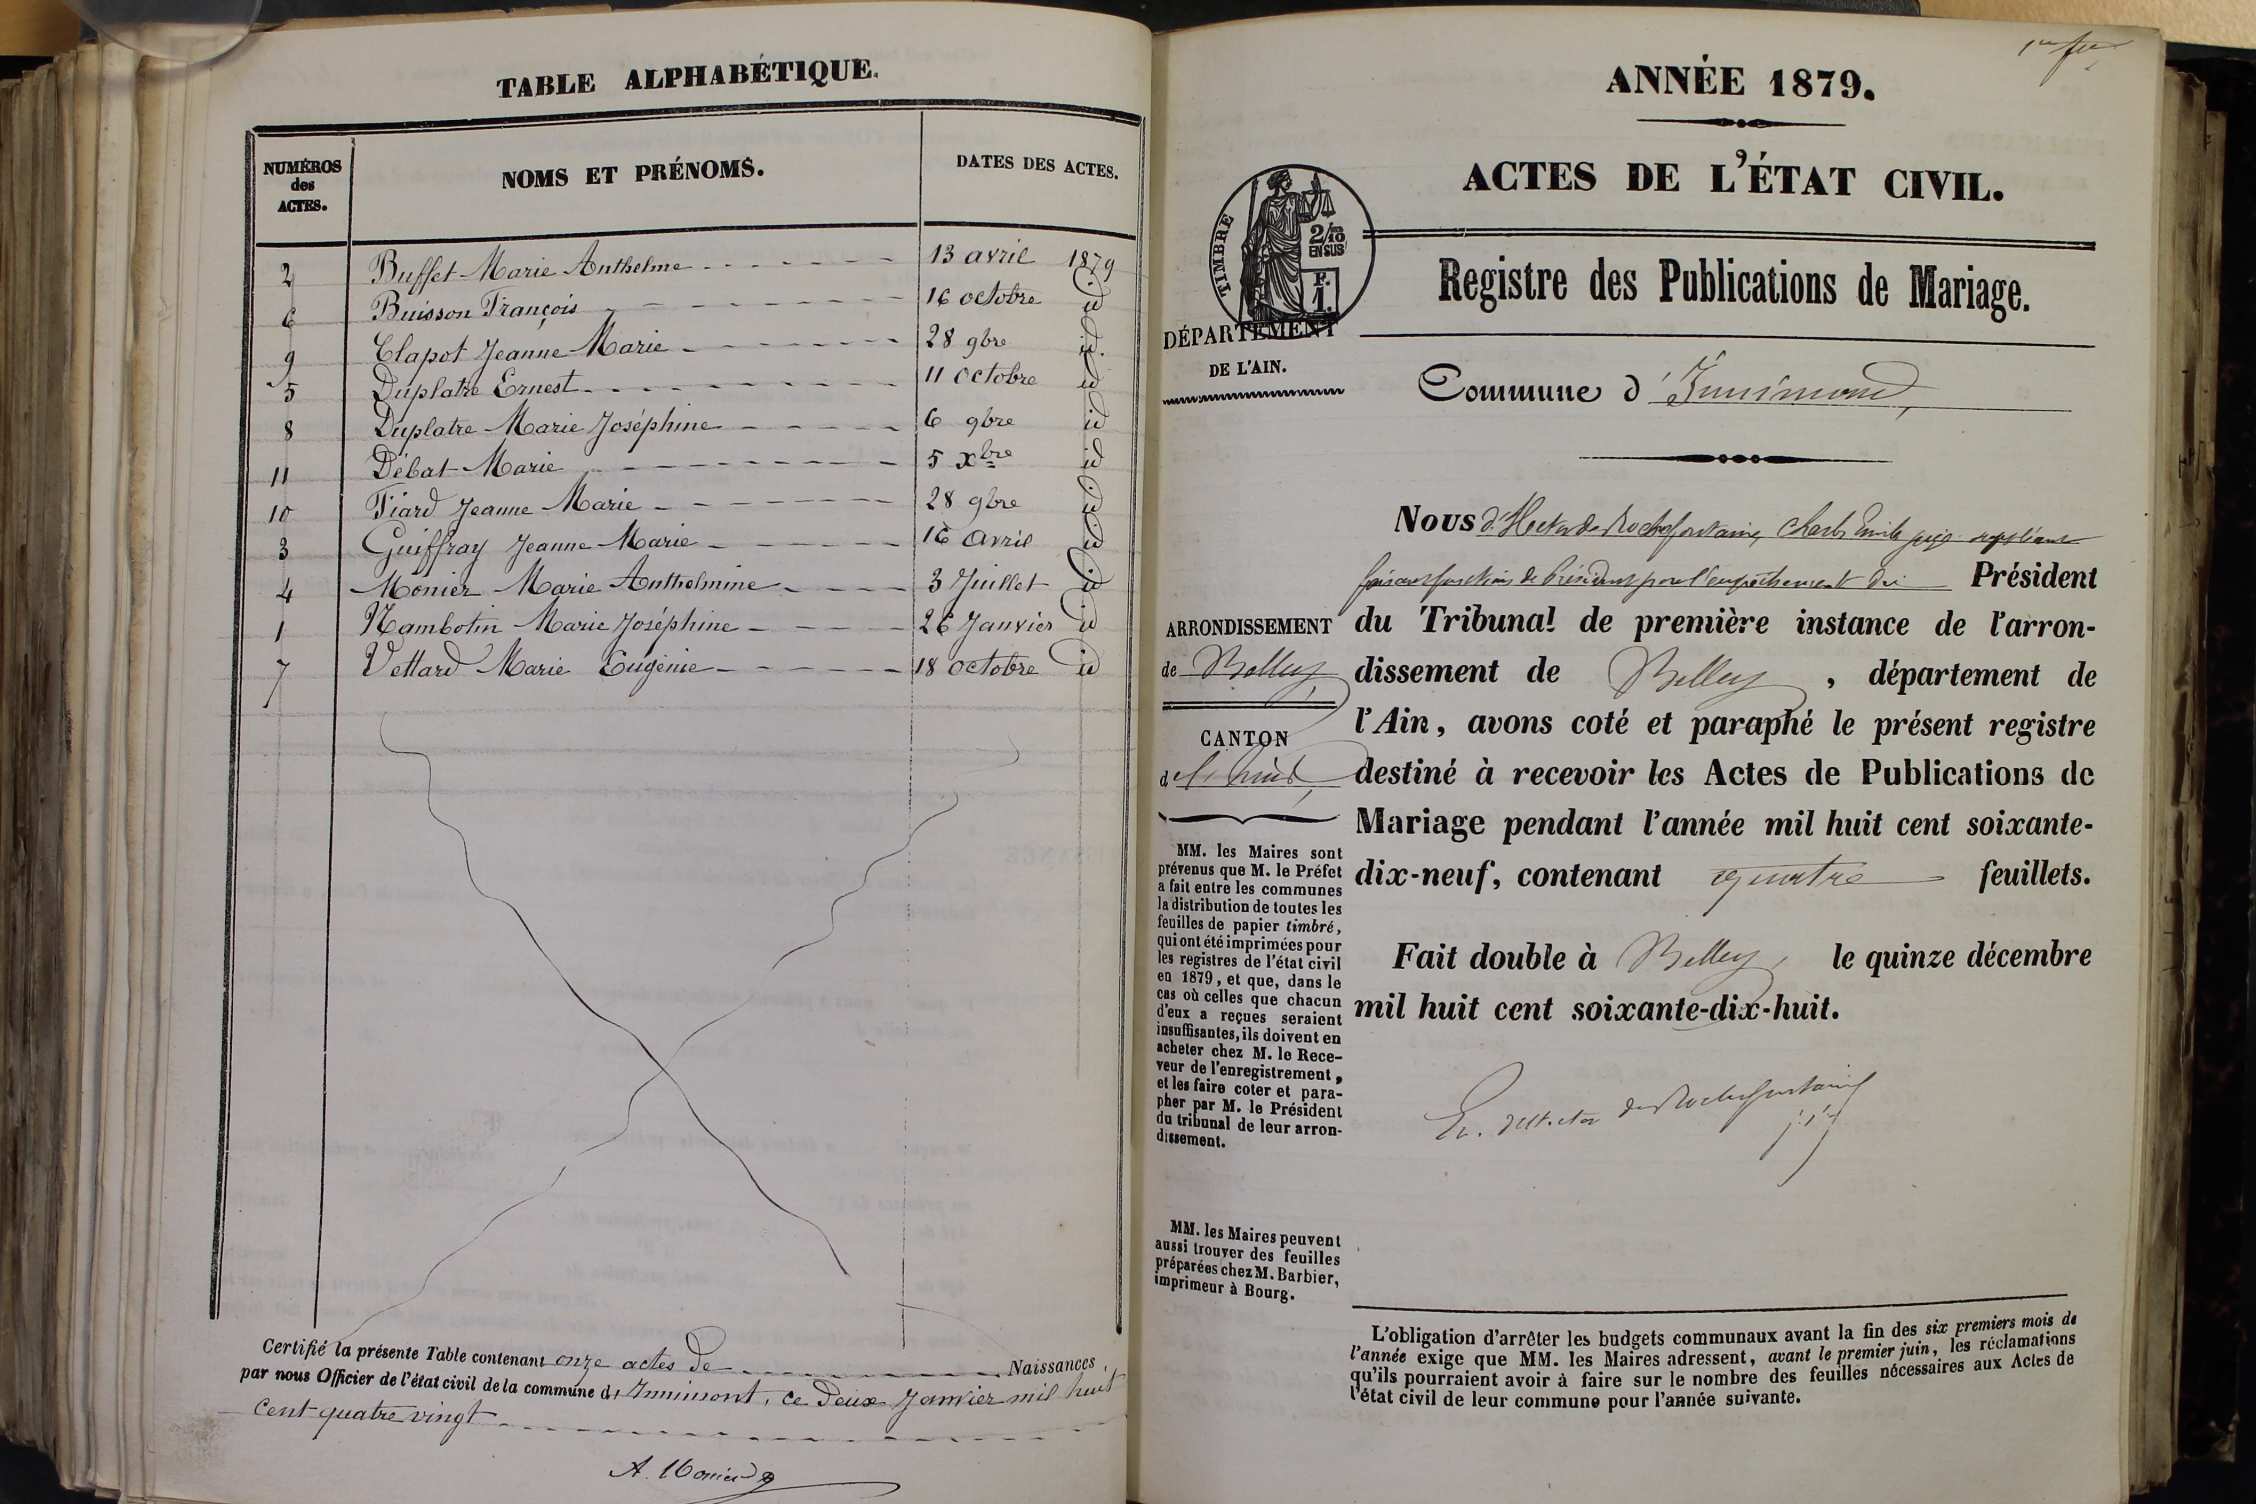 TABLE ALPHABÉTIQUE.
NUMÉROS des ACTES. NOMS ET PRÉNOMS. DATES DES ACTES.
2 Buffet Marie Anthelme 13 avril 1879
6 Buisson François 16 octobre id
9 Clapot Jeanne Marie 28 9bre id
5 Duplatre Ernest 11 octobre id
8 Duplatre Marie Joséphine 6 9bre id
11 Débat Marie 5 Xbre id
10 Fiard Jeanne Marie 28 9bre id
3 Guiffray Jeanne Marie 16 avril id
4 Monier Marie Anthelmine 3 Juillet id
1 Nambotin Marie Joséphine 26 Janvier id
7 Vettard Marie Eugénie 18 octobre id
Certifié la présente Table contenant onze actes de Naissances,
par nous Officier de l'état civil de la commune d' Innimont, ce deux Janvier mil huit
cent quatre vingt
A. Monier
ANNÉE 1879.
ACTES DE L'ÉTAT CIVIL.
TIMBRE
2/10 EN SUS
F. 1.
Registre des Publications de Mariage.
DÉPARTEMENT
DE L'AIN.
Commune d' Innimond,
ARRONDISSEMENT
de Belley
CANTON
MM. les Maires sont
prévenus que M. le Préfet
a fait entre les communes
la distribution de toutes les
feuilles de papier timbré,
qui ont été imprimées pour
les registres de l'état civil
en 1879, et que, dans le
cas où celles que chacun
d'eux a reçues seraient
insuffisantes, ils doivent en
acheter chez M. le Rece-
veur de l'enregistrement,
et les faire coter et para-
pher par M. le Président
du tribunal de leur arron-
dissement.
MM. les Maires peuvent
aussi trouver des feuilles
préparées chez M. Barbier,
imprimeur à Bourg.
Nous d'Hector de Rochefontaine, Charles Emile juge suppléant
faisant fonctions de Président pour l'empêchement du Président
du Tribunal de première instance de l'arron-
dissement de Belley, département de
l'Ain, avons coté et paraphé le présent registre
destiné à recevoir les Actes de Publications de
Mariage pendant l'année mil huit cent soixante-
dix-neuf, contenant quatre feuillets.
Fait double à Belley, le quinze décembre
mil huit cent soixante-dix-huit.
d'Hector de Rochefontaine
L'obligation d'arrêter les budgets communaux avant la fin des six premiers mois de
l'année exige que MM. les Maires adressent, avant le premier juin, les réclamations
qu'ils pourraient avoir à faire sur le nombre des feuilles nécessaires aux Actes de
l'état civil de leur commune pour l'année suivante.